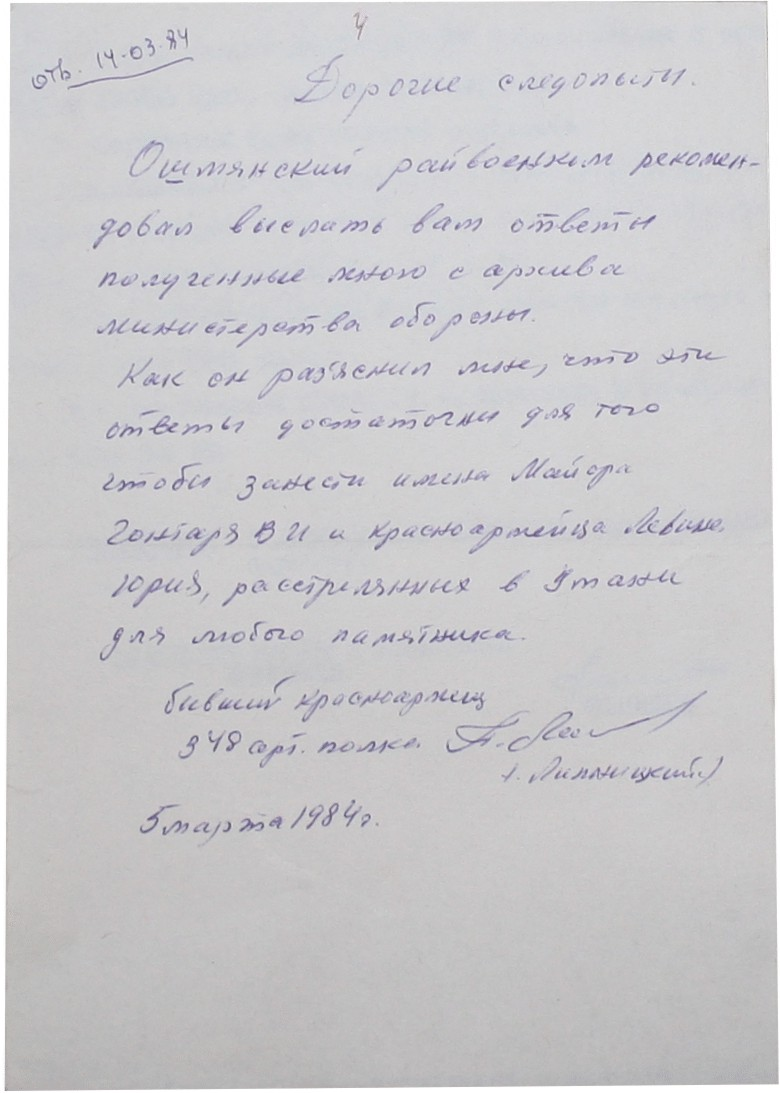 4
отв. 14-03-84
Дорогие следопыты.
Ошмянский райвоенком рекомен-
довал выслать вам ответы
полученные мною с архива
министерства обороны.
Как он разъяснил мне, что эти
ответы достаточны для того
чтобы занести имена Майора
Гонтаря В И и красноармейца Левина
Юрия, расстрелянных в
для любого памятника.
бывший красноармеец
348 арт. полка.
5 марта 1984 г.